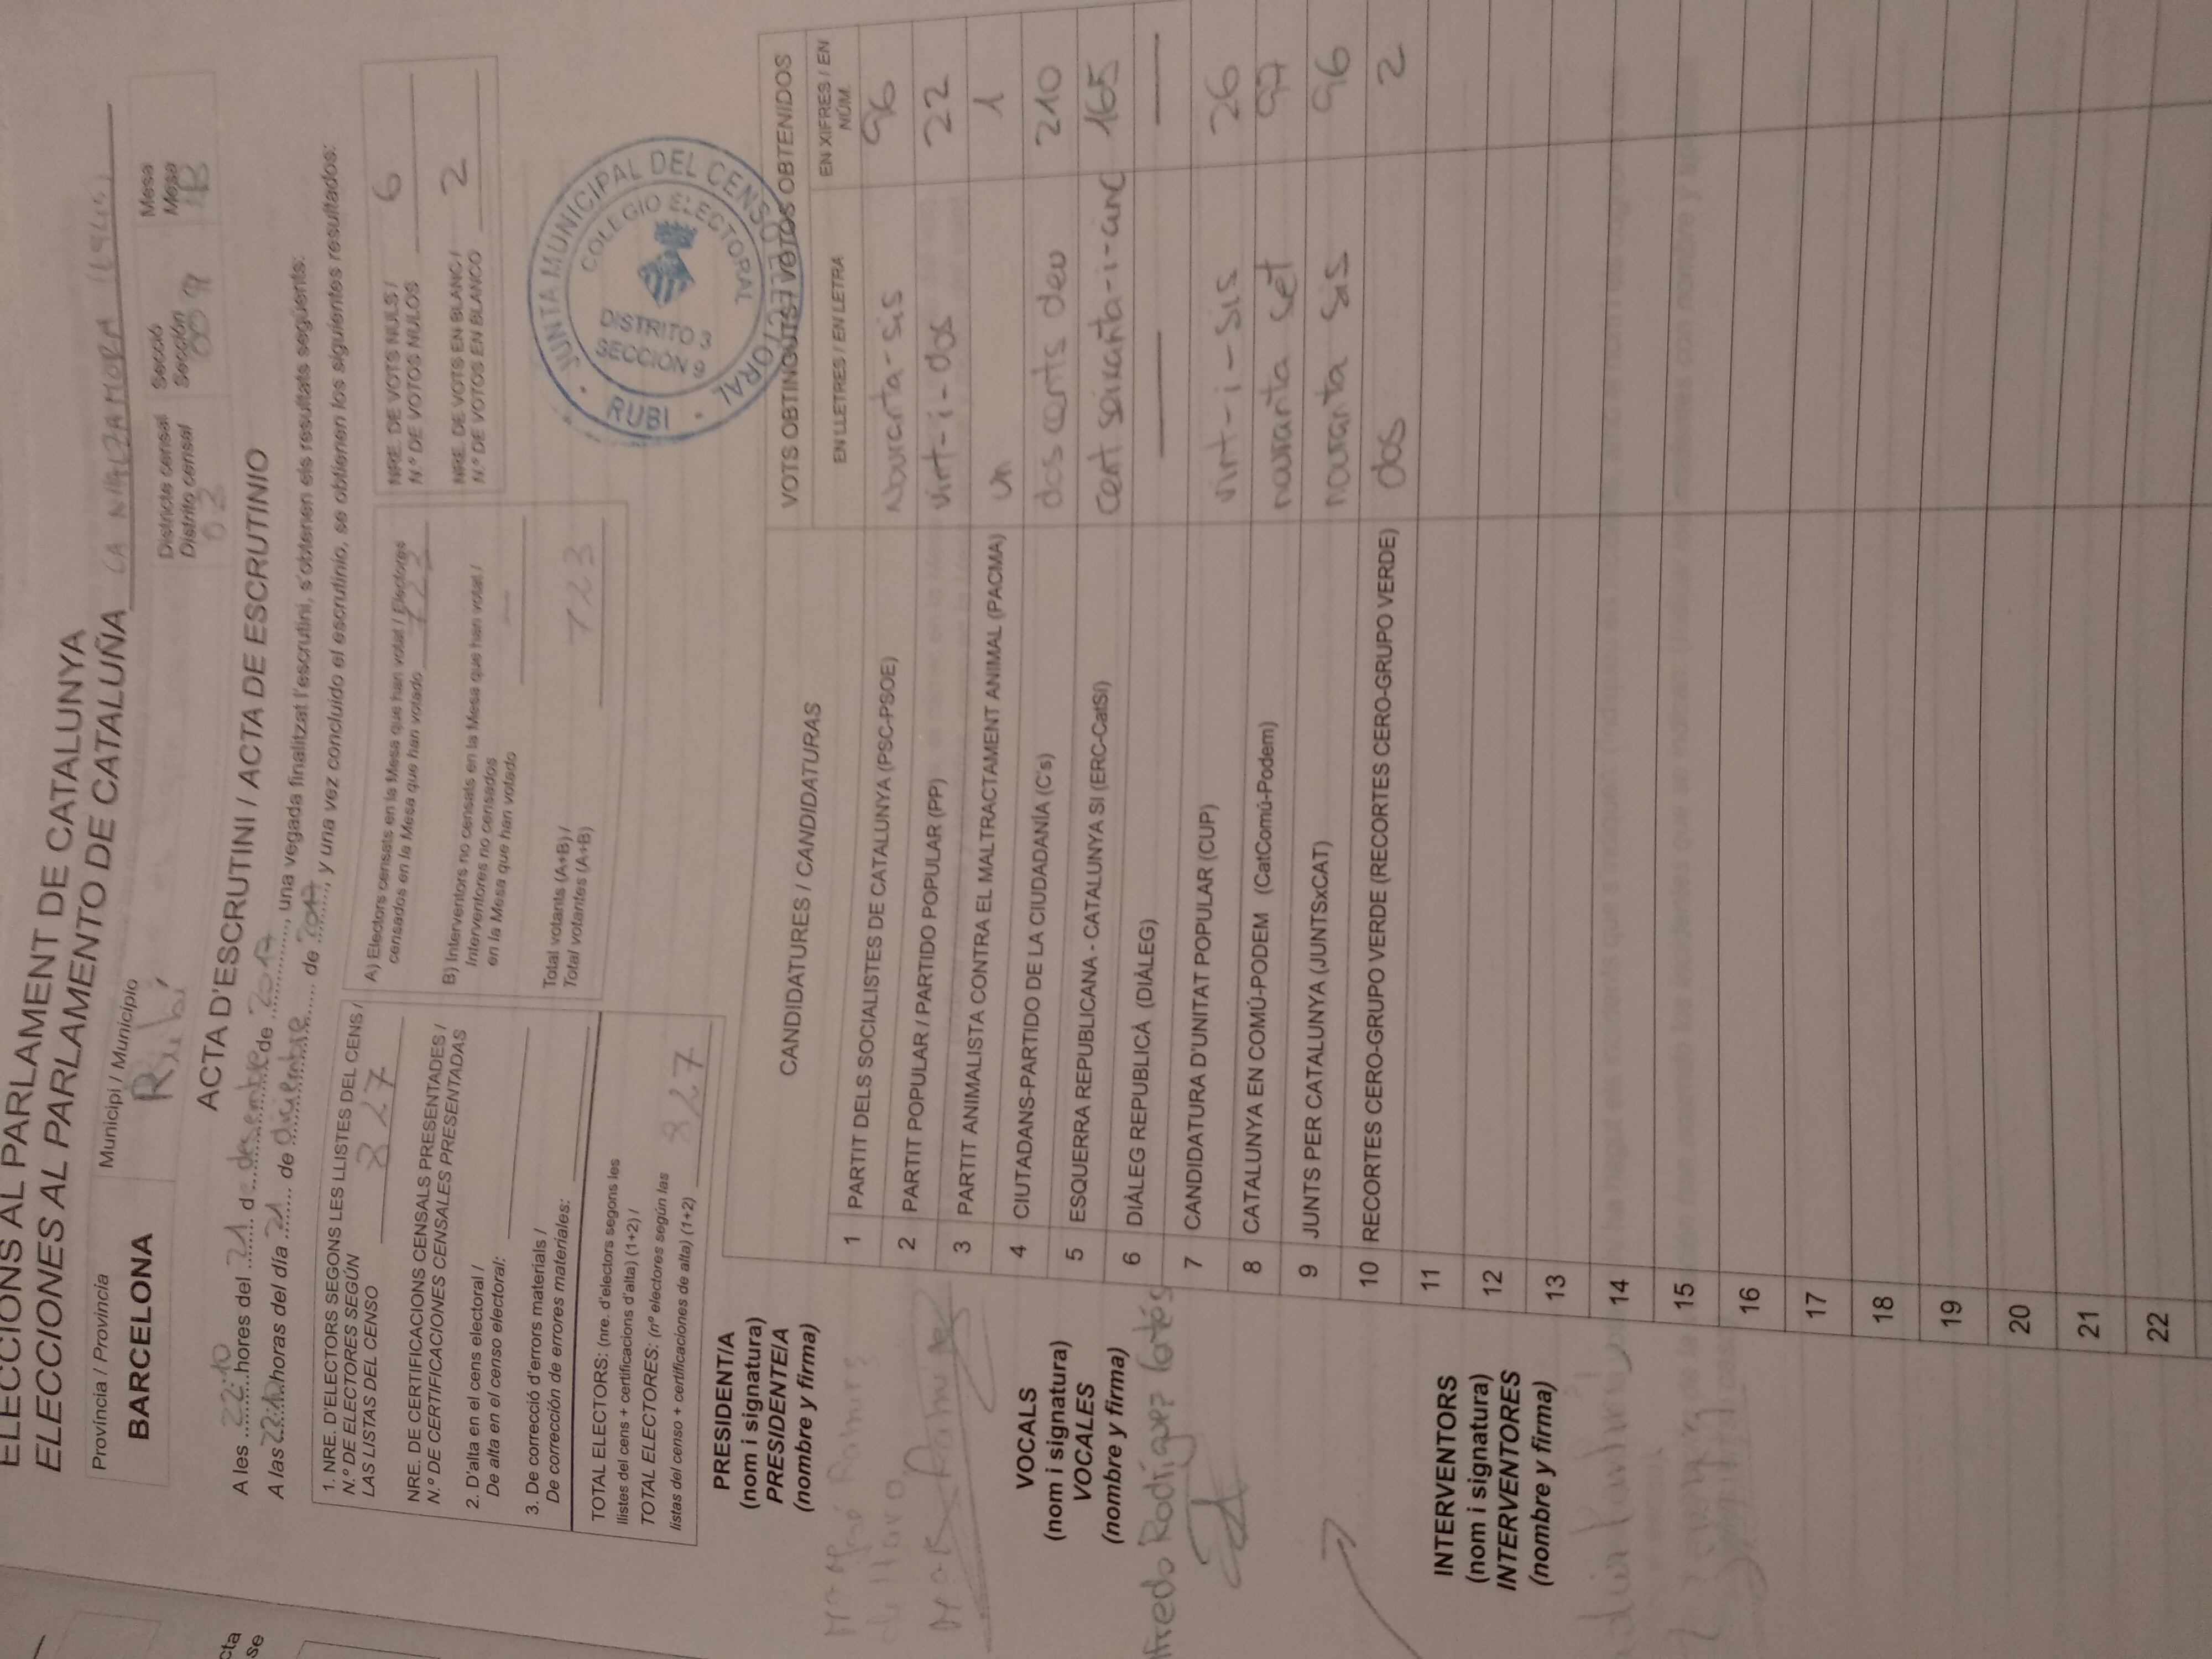 ELECCIONS AL PARLAMENT DE CATALUNYA
ELECCIONES AL PARLAMENTO DE CATALUÑA
Província / Provincia
BARCELONA
Municipi / Municipio
Rubí
Districte censal
Distrito censal
03
Secció
Sección
009
Mesa
Mesa
B
ACTA D'ESCRUTINI / ACTA DE ESCRUTINIO
A les 22:10 hores del 21 de desembre de 2017, una vegada finalitzat l'escrutini, s'obtenen els resultats següents:
A las 22:10 horas del día 21 de diciembre de 2017, y una vez concluido el escrutinio, se obtienen los siguientes resultados:
1. NRE. D'ELECTORS SEGONS LES LLISTES DEL CENS /
N.º DE ELECTORES SEGÚN
LAS LISTAS DEL CENSO 827
NRE. DE CERTIFICACIONS CENSALS PRESENTADES /
N.º DE CERTIFICACIONES CENSALES PRESENTADAS
2. D'alta en el cens electoral /
De alta en el censo electoral:
3. De correcció d'errors materials /
De corrección de errores materiales:
TOTAL ELECTORS: (nre. d'electors segons les
llistes del cens + certificacions d'alta) (1+2) /
TOTAL ELECTORES: (nº electores según las
listas del censo + certificaciones de alta) (1+2) 827
A) Electors censats en la Mesa que han votat / Electores
censados en la Mesa que han votado 723
B) Interventors no censats en la Mesa que han votat /
Interventores no censados
en la Mesa que han votado —
Total votants (A+B) /
Total votantes (A+B) 723
NRE. DE VOTS NULS /
N.º DE VOTOS NULOS 6
NRE. DE VOTS EN BLANC /
N.º DE VOTOS EN BLANCO 2
JUNTA MUNICIPAL DEL CENSO ELECTORAL - RUBI -
COLEGIO ELECTORAL
DISTRITO 3
SECCION 9
PRESIDENT/A
(nom i signatura)
PRESIDENTE/A
(nombre y firma)
Mª José Ramírez
de Haro
VOCALS
(nom i signatura)
VOCALES
(nombre y firma)
lfredo Rodríguez Cortés
INTERVENTORS
(nom i signatura)
INTERVENTORES
(nombre y firma)
CANDIDATURES / CANDIDATURAS
VOTS OBTINGUTS / VOTOS OBTENIDOS
EN LLETRES / EN LETRA
EN XIFRES / EN NÚM.
1 PARTIT DELS SOCIALISTES DE CATALUNYA (PSC-PSOE) Nouranta-sis 96
2 PARTIT POPULAR / PARTIDO POPULAR (PP) vint-i-dos 22
3 PARTIT ANIMALISTA CONTRA EL MALTRACTAMENT ANIMAL (PACMA) un 1
4 CIUTADANS-PARTIDO DE LA CIUDADANÍA (C's) dos cents deu 210
5 ESQUERRA REPUBLICANA - CATALUNYA SI (ERC-CatSí) cent seixanta-i-cinc 165
6 DIÀLEG REPUBLICÀ (DIÀLEG) — —
7 CANDIDATURA D'UNITAT POPULAR (CUP) vint-i-sis 26
8 CATALUNYA EN COMÚ-PODEM (CatComú-Podem) nouranta set 97
9 JUNTS PER CATALUNYA (JUNTSxCAT) nouranta sis 96
10 RECORTES CERO-GRUPO VERDE (RECORTES CERO-GRUPO VERDE) dos 2
11
12
13
14
15
16
17
18
19
20
21
22